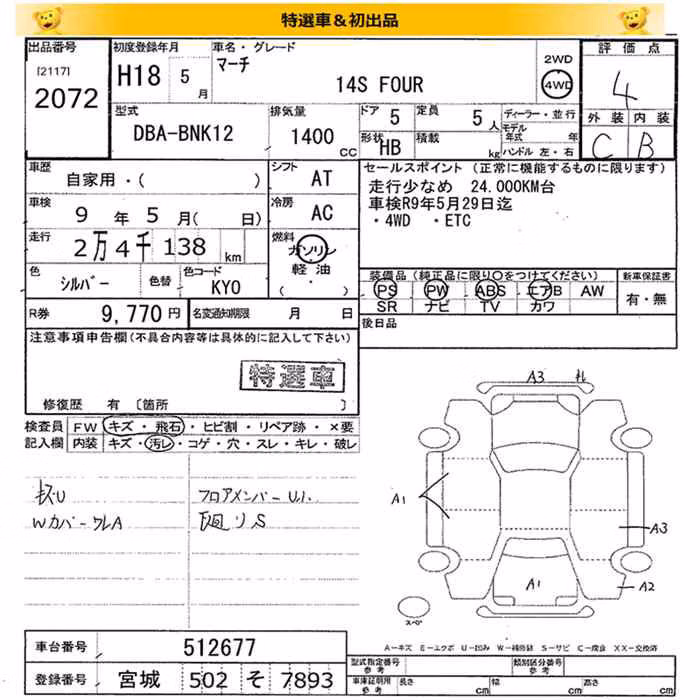 特選車&初出品
出品番号
[2117]
2072
初度登録年月
H18 5 月
車名・グレード
マーチ
14S FOUR
2WD
4WD
評価点
4
外装 内装
C B
型式
DBA-BNK12
排気量
1400 CC
ドア 5
定員 5 人
形状 HB
積載 kg
ディーラー・並行
モデル年式 年
ハンドル 左・右
車歴
自家用・( )
シフト
AT
車検
9 年 5 月( 日)
冷房
AC
走行
2万4千138 km
燃料
ガソリン
軽油
( )
色
シルバー
色替
色コード
KY0
セールスポイント (正常に機能するものに限ります)
走行少なめ 24.000KM台
車検R9年5月29日迄
・4WD ・ETC
装備品 (純正品に限り○をつけてください)
新車保証書
PS PW ABS エアB AW
SR ナビ TV カワ
有・無
R券 9,770 円
名変通知期限 月 日
後日品
注意事項申告欄(不具合内容等は具体的に記入して下さい)
特選車
修復歴 有 [箇所 ]
検査員記入欄
FW キズ・飛石・ヒビ割・リペア跡・×要
内装 キズ・汚レ・コゲ・穴・スレ・キレ・破レ
キズU
WカバーワレA
フロアメンバーU.I.
廻りS
A3
A1
A3
A1
A2
スペア
A=キズ E=エクボ U=凹み W=補修跡 S=サビ C=腐食 XX=交換済
車台番号 512677
登録番号 宮城 502 そ 7893
型式指定番号 参考
類別区分番号 参考
車庫証明用 参考
長さ cm 幅 cm 高さ cm